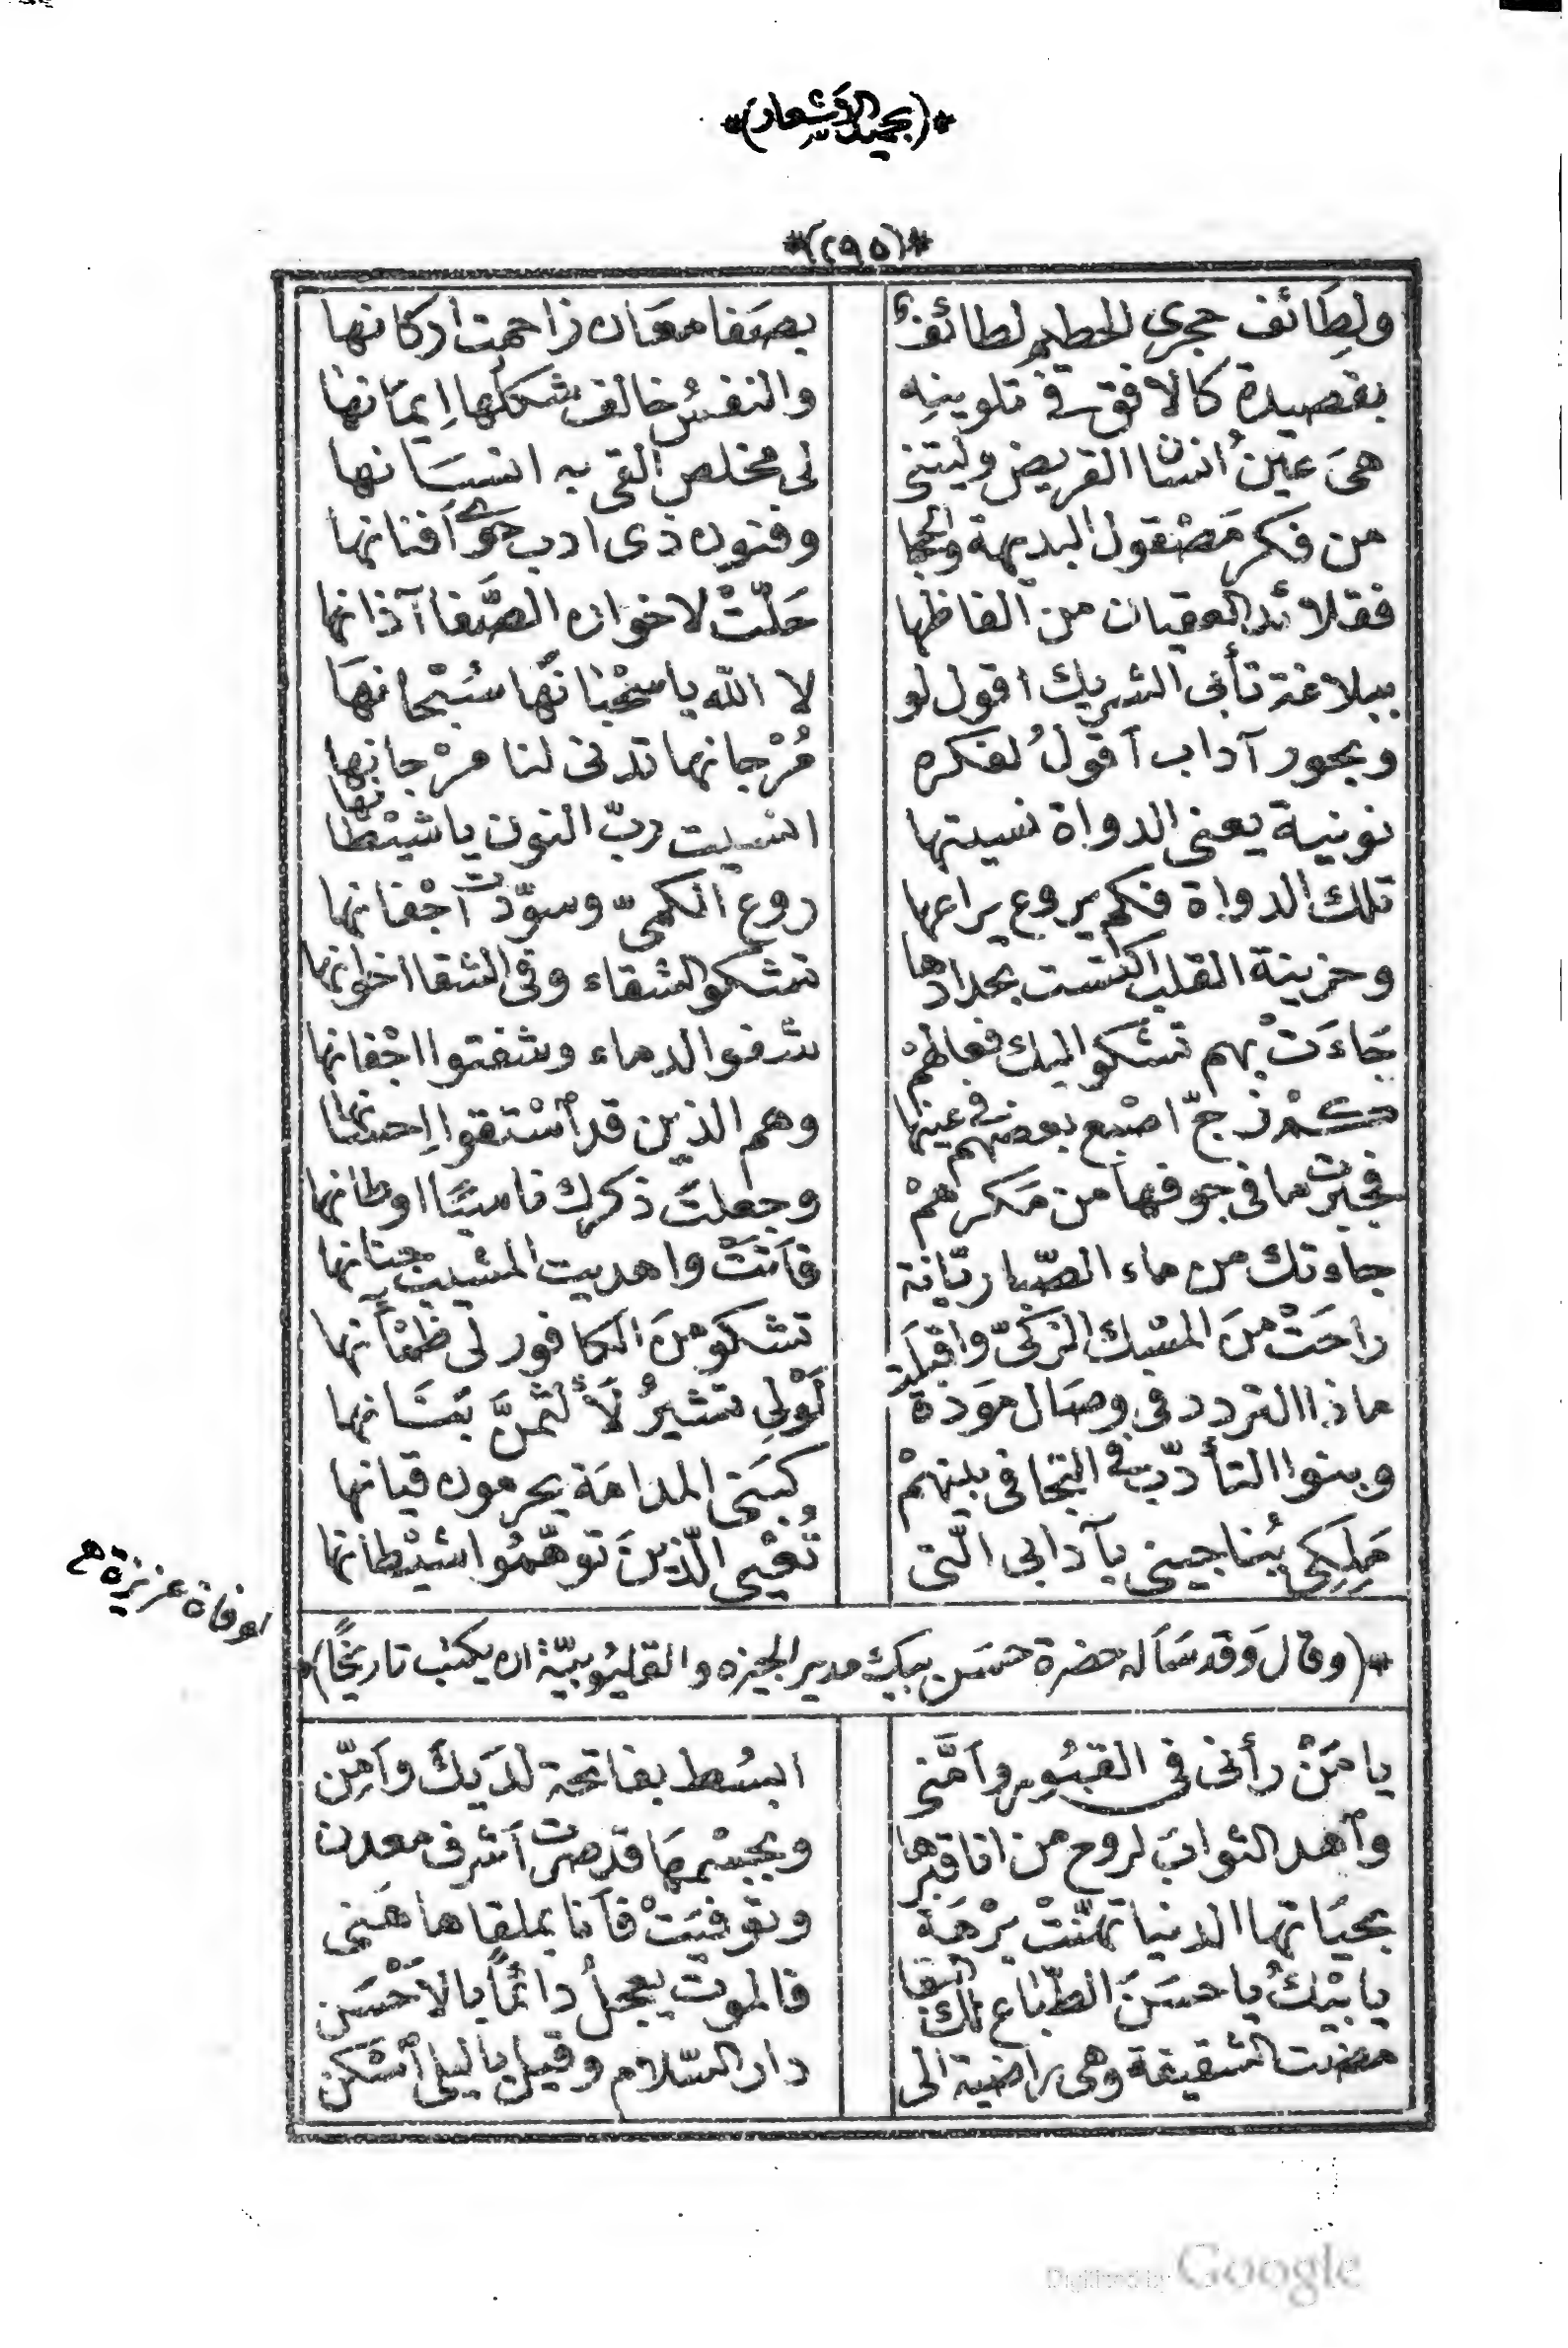 *(بحميد الأشعار)*
*(٢٩٥)*
ولطائف حجرى الحطيم لطائف بصفا معان زاحمت اركانها
بقصيدة كالافق فى تلوينه والنفسُ خالف شكلُها اِيمانها
هىَ عينُ انسان القريض وليتنى لى مخلص القى به انسَانها
من فكر مَصْقول البديهة والحجا وفنون ذى ادب حوى اَفنانها
فقلائد العقيان من الفاظها حَلّتْ لاخوان الصَّفا آذانها
ببلاغة تأبى الشريك اقول لو لا الله يا سَحْبانَها سُبْحانهَا
وبحور آداب اَقولُ لفكره مُرْجانها تدنى لنا مرْجانها
نونية يعنى الدواة نسيتها انسيت ربّ النون يا شيْطانها
تلك الدواة فكم يروع يراعها روع الكمىّ وسوّدت اَجْفانها
وحزينة القلب اكتست بحدادها تشكو الشقاء وفى الشقا اخوانها
جَاءَتْ بهم تشكو اليك فعالهمْ سَفوا الدماء وشفتوا اجْفانها
كمْ زجّ اصْبع بعضهم فى عينها وهم الذين قد اسْتقوا اِحسانها
فجرت ما فى جوفها من مَكرهمْ وجعلتَ ذكرك ناسيًا اوطانها
جاءتك من ماء الصّبا ريّانة فاَنَتْ واهديت المشيب جنانها
راحَتْ منَ المسْك الزكىّ واقبلَت تشكو منَ الكافور لى ظمْأنها
ماذا التردد فى وصَال مَودة لَوْلى تشيرُ لَأَلثمنَّ بَنَانها
وبنوا التأدّب فى التجافى بينهمْ كبَنى المدامَة يحرمون قيانها
مَلِكِى يُناجينى بآدابى الّتى تُغْيى الّذينَ توهَّمُوا شيْطانها
لوفاة عزيزة هم
*(وقالَ وَقد سَأله حضرة حسَن بيك مدير الجيزه والقليُوبيّة ان يكتب تاريخًا)*
يا مَنْ رأنى فى القبُور واَمَّنى ابسُط بفاتحة لدَيكَ واَمِّن
واَهد الثوابَ لروح من انا قبرها وبجسْمهَا قد صرت اَشرف معدن
بحيَاتها الدنيا تهنّتْ برْهَة وتوفيَتْ فاَنا بملقاها هَنى
يا بيْكُ يا حسَنَ الطّباع لك البقا فالموت يعجلُ دائمًا بالاَحْسَن
مضت الشقيقة وهى راضية الى دار السّلام وقيل يا ليلى اسْكن